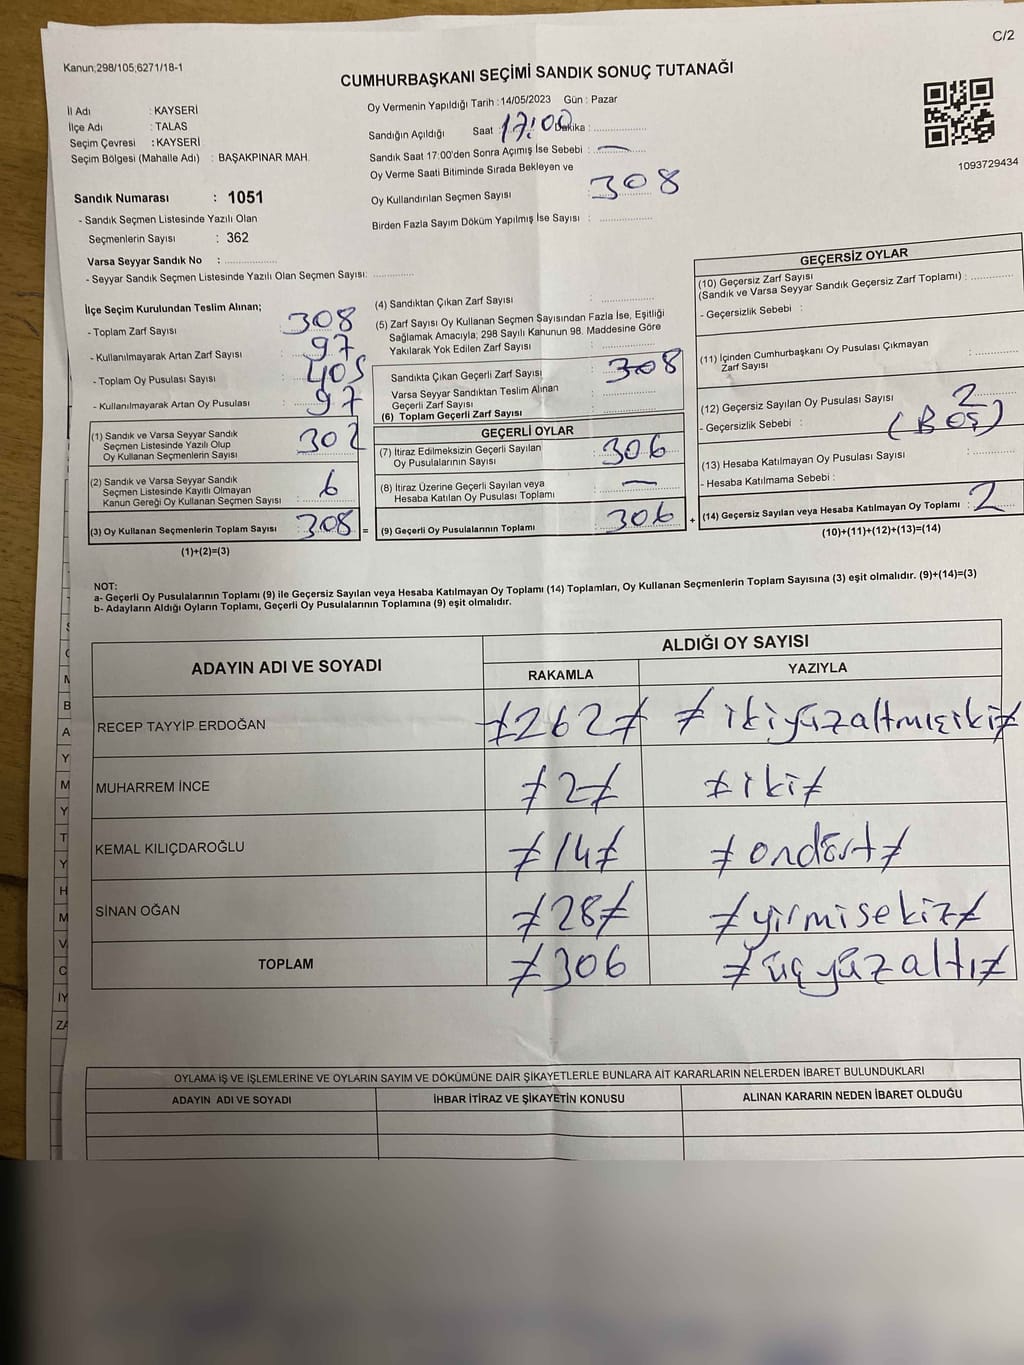 C/2
Kanun;298/105,6271/18-1
CUMHURBAŞKANI SEÇİMİ SANDIK SONUÇ TUTANAĞI
İl Adı : KAYSERİ
İlçe Adı : TALAS
Seçim Çevresi : KAYSERİ
Seçim Bölgesi (Mahalle Adı) : BAŞAKPINAR MAH.
Sandık Numarası : 1051
- Sandık Seçmen Listesinde Yazılı Olan
Seçmenlerin Sayısı : 362
Varsa Seyyar Sandık No : ..............
- Seyyar Sandık Seçmen Listesinde Yazılı Olan Seçmen Sayısı: ............
Oy Vermenin Yapıldığı Tarih : 14/05/2023 Gün : Pazar
Sandığın Açıldığı Saat 17:00 Dakika : ..............
Sandık Saat 17:00'den Sonra Açımış İse Sebebi : —
Oy Verme Saati Bitiminde Sırada Bekleyen ve
Oy Kullandırılan Seçmen Sayısı : 308
Birden Fazla Sayım Döküm Yapılmış İse Sayısı : ..............
1093729434
İlçe Seçim Kurulundan Teslim Alınan;
- Toplam Zarf Sayısı : 308
- Kullanılmayarak Artan Zarf Sayısı : 97
- Toplam Oy Pusulası Sayısı : 405
- Kullanılmayarak Artan Oy Pusulası : 97
(1) Sandık ve Varsa Seyyar Sandık
Seçmen Listesinde Yazılı Olup
Oy Kullanan Seçmenlerin Sayısı : 302
(2) Sandık ve Varsa Seyyar Sandık
Seçmen Listesinde Kayıtlı Olmayan
Kanun Gereği Oy Kullanan Seçmen Sayısı : 6
(3) Oy Kullanan Seçmenlerin Toplam Sayısı : 308 =
(1)+(2)=(3)
(4) Sandıktan Çıkan Zarf Sayısı : ..............
(5) Zarf Sayısı Oy Kullanan Seçmen Sayısından Fazla İse, Eşitliği
Sağlamak Amacıyla; 298 Sayılı Kanunun 98. Maddesine Göre
Yakılarak Yok Edilen Zarf Sayısı : ..............
Sandıkta Çıkan Geçerli Zarf Sayısı : 308
Varsa Seyyar Sandıktan Teslim Alınan
Geçerli Zarf Sayısı : ..............
(6) Toplam Geçerli Zarf Sayısı : ..............
GEÇERLİ OYLAR
(7) İtiraz Edilmeksizin Geçerli Sayılan
Oy Pusulalarının Sayısı : 306
(8) İtiraz Üzerine Geçerli Sayılan veya
Hesaba Katılan Oy Pusulası Toplamı : —
(9) Geçerli Oy Pusulalarının Toplamı : 306 +
GEÇERSİZ OYLAR
(10) Geçersiz Zarf Sayısı
(Sandık ve Varsa Seyyar Sandık Geçersiz Zarf Toplamı) : ............
- Geçersizlik Sebebi :
(11) İçinden Cumhurbaşkanı Oy Pusulası Çıkmayan
Zarf Sayısı : ............
(12) Geçersiz Sayılan Oy Pusulası Sayısı : 2
- Geçersizlik Sebebi : (BOŞ)
(13) Hesaba Katılmayan Oy Pusulası Sayısı : ............
- Hesaba Katılmama Sebebi :
(14) Geçersiz Sayılan veya Hesaba Katılmayan Oy Toplamı : 2
(10)+(11)+(12)+(13)=(14)
NOT:
a- Geçerli Oy Pusulalarının Toplamı (9) ile Geçersiz Sayılan veya Hesaba Katılmayan Oy Toplamı (14) Toplamları, Oy Kullanan Seçmenlerin Toplam Sayısına (3) eşit olmalıdır. (9)+(14)=(3)
b- Adayların Aldığı Oyların Toplamı, Geçerli Oy Pusulalarının Toplamına (9) eşit olmalıdır.
ADAYIN ADI VE SOYADI
ALDIĞI OY SAYISI
RAKAMLA YAZIYLA
RECEP TAYYİP ERDOĞAN ≠262≠ ≠ikiyüzaltmışiki≠
MUHARREM İNCE ≠2≠ ≠iki≠
KEMAL KILIÇDAROĞLU ≠14≠ ≠ondört≠
SİNAN OĞAN ≠28≠ ≠yirmisekiz≠
TOPLAM ≠306 ≠üçyüzaltı≠
OYLAMA İŞ VE İŞLEMLERİNE VE OYLARIN SAYIM VE DÖKÜMÜNE DAİR ŞİKAYETLERLE BUNLARA AİT KARARLARIN NELERDEN İBARET BULUNDUKLARI
ADAYIN ADI VE SOYADI İHBAR İTİRAZ VE ŞİKAYETİN KONUSU ALINAN KARARIN NEDEN İBARET OLDUĞU